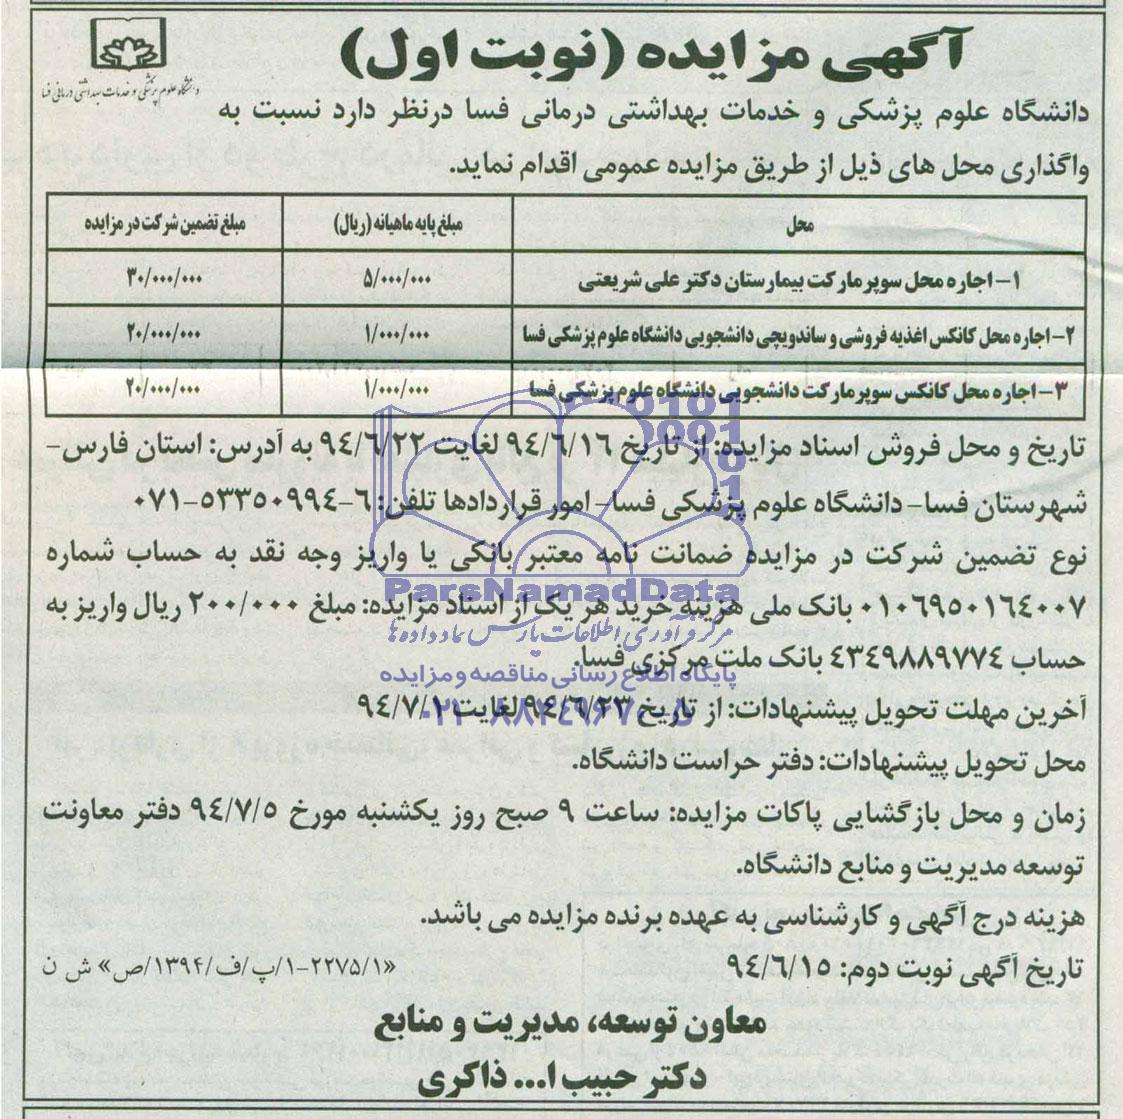 آگهی مزایده (نوبت اول)
دانشگاه علوم پزشکی و خدمات بهداشتی درمانی فسا
دانشگاه علوم پزشکی و خدمات بهداشتی درمانی فسا درنظر دارد نسبت به
واگذاری محل های ذیل از طریق مزایده عمومی اقدام نماید.
محل مبلغ پایه ماهیانه (ریال) مبلغ تضمین شرکت در مزایده
۱- اجاره محل سوپرمارکت بیمارستان دکتر علی شریعتی ۵/۰۰۰/۰۰۰ ۳۰/۰۰۰/۰۰۰
۲- اجاره محل کانکس اغذیه فروشی و ساندویچی دانشجویی دانشگاه علوم پزشکی فسا ۱/۰۰۰/۰۰۰ ۲۰/۰۰۰/۰۰۰
۳- اجاره محل کانکس سوپرمارکت دانشجویی دانشگاه علوم پزشکی فسا ۱/۰۰۰/۰۰۰ ۲۰/۰۰۰/۰۰۰
تاریخ و محل فروش اسناد مزایده: از تاریخ ۹٤/٦/۱٦ لغایت ۹٤/٦/۲۲ به آدرس: استان فارس-
شهرستان فسا- دانشگاه علوم پزشکی فسا- امور قراردادها تلفن: ٦-۵۳۳۵۰۹۹٤-۰۷۱
نوع تضمین شرکت در مزایده ضمانت نامه معتبر بانکی یا واریز وجه نقد به حساب شماره
۰۱۰٦۹۵۰۱٦٤۰۰۷ بانک ملی هزینه خرید هر یک از اسناد مزایده: مبلغ ۲۰۰/۰۰۰ ریال واریز به
حساب ٤۳٤۹۸۸۹۷۷٤ بانک ملت مرکزی فسا.
آخرین مهلت تحویل پیشنهادات: از تاریخ ۹٤/٦/۲۳ لغایت ۹٤/۷/۱
محل تحویل پیشنهادات: دفتر حراست دانشگاه.
زمان و محل بازگشایی پاکات مزایده: ساعت ۹ صبح روز یکشنبه مورخ ۹٤/۷/۵ دفتر معاونت
توسعه مدیریت و منابع دانشگاه.
هزینه درج آگهی و کارشناسی به عهده برنده مزایده می باشد.
تاریخ آگهی نوبت دوم: ۹٤/٦/۱۵
«۱/پ/ف/۱۳۹۴/ص-۲۲۷۵/۱» ش ن
معاون توسعه، مدیریت و منابع
دکتر حبیب ا... ذاکری
0101
ParsNamadData
مرکز فرآوری اطلاعات پارس نماد داده ها
پایگاه اطلاع رسانی مناقصه و مزایده